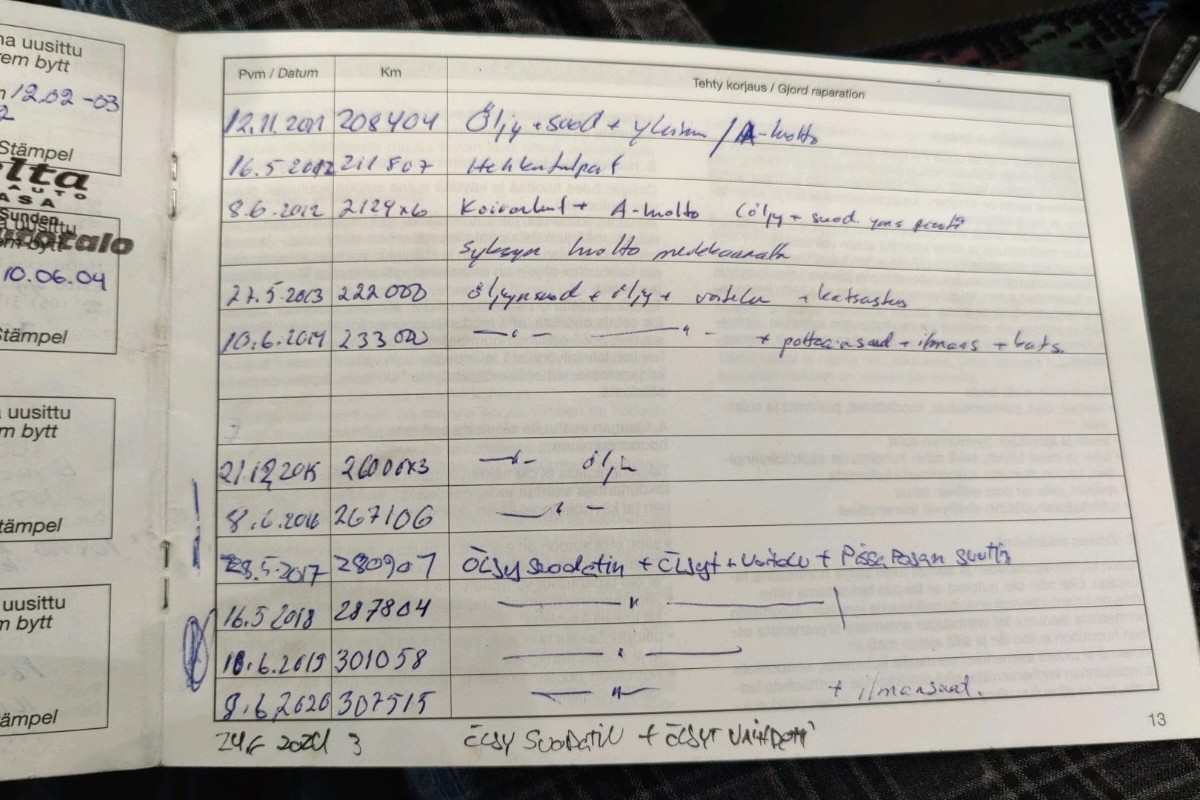 na uusittu
rem bytt
12.02-03
2
Stämpel
elta
AUTO
ASA
Sunden
uusittu
m bytt
talo
10.06.04
Stämpel
uusittu
m bytt
tämpel
uusittu
em bytt
tämpel
Pvm / Datum Km Tehty korjaus / Gjord raparation
12.11.2011 208404 Öljy + suod + / A-huolto
16.5.2012 211807 Hehkutulpat
8.6.2012 + A-huolto (öljy + suod.
Syksyn huolto
27.5.2013 222000 Öljynsuod + öljy + voitelu + katsastus
10.6.2014 233000 —"— —"— + polttoainsuod + ilmans + kats.
21.12.2015 —"— öljy
8.6.2016 267106 —"—
28.5.2017 280907 ÖLJYSUODATIN + ÖLJYT + VOITELU + PISSAPOJAN
16.5.2018 287804 —"—
10.6.2019 301058 —"—
8.6.2020 307515 —"— + ilmansuod.
3 ÖLJY SUODATIN + ÖLJYT
13